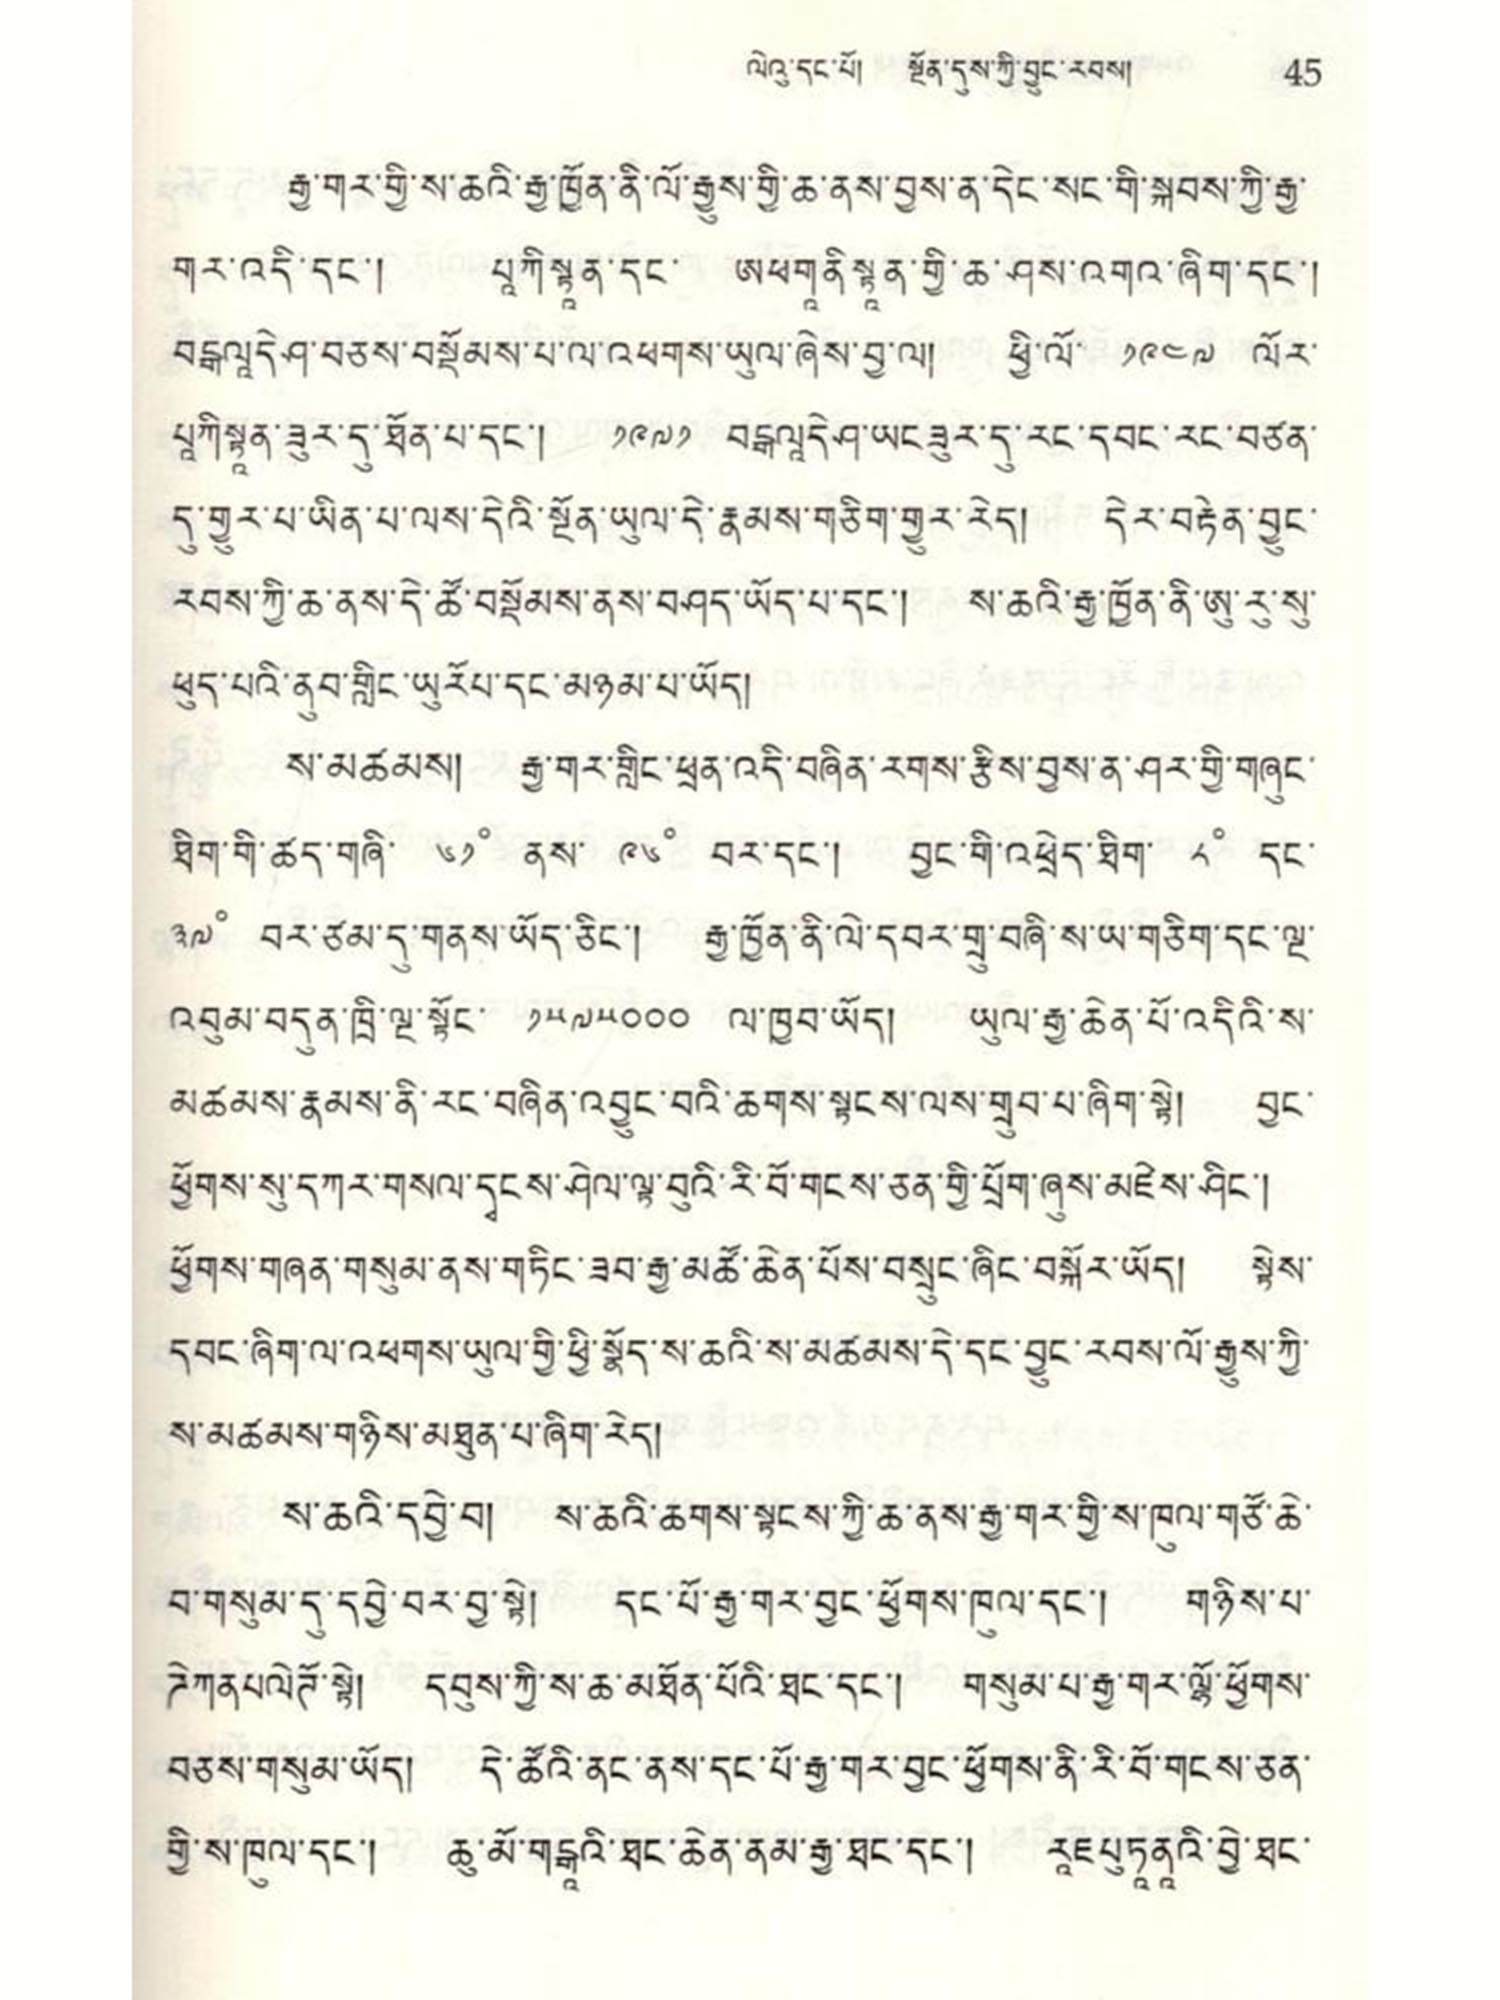 ལེའུ་དང་པོ།	སྔོན་དུས་ཀྱི་བྱུང་རབས།	45
རྒྱ་གར་གྱི་ས་ཆའི་རྒྱ་ཁྱོན་ནི་ལོ་རྒྱུས་གྱི་ཆ་ནས་བྱས་ན་དེང་སང་གི་སྐབས་ཀྱི་རྒྱ་
གར་འདི་དང་། པཱཀིསྟཱན་དང་ ཨཕགཱནིསྟཱན་གྱི་ཆ་ཤས་འགའ་ཞིག་དང་།
བངྒལཱདེཤ་བཅས་བསྡོམས་པ་ལ་འཕགས་ཡུལ་ཞེས་བྱ་ལ། ཕྱི་ལོ་ ༡༩༤༧ ལོར་
པཱཀིསྟཱན་ཟུར་དུ་ཐོན་པ་དང་། ༡༩༧༡ བངྒལཱདེཤ་ཡང་ཟུར་དུ་རང་དབང་རང་བཙན་
དུ་གྱུར་པ་ཡིན་པ་ལས་དེའི་སྔོན་ཡུལ་དེ་རྣམས་གཅིག་གྱུར་རེད། དེར་བརྟེན་བྱུང་
རབས་ཀྱི་ཆ་ནས་དེ་ཚོ་བསྡོམས་ནས་བཤད་ཡོད་པ་དང་། ས་ཆའི་རྒྱ་ཁྱོན་ནི་ཨུ་རུ་སུ་
ཕུད་པའི་ནུབ་གླིང་ཡུརོཔ་དང་མཉམ་པ་ཡོད།
ས་མཚམས། རྒྱ་གར་གླིང་ཕྲན་འདི་བཞིན་རགས་རྩིས་བྱས་ན་ཤར་གྱི་གཞུང་
ཐིག་གི་ཚད་གཞི་ ༦༡° ནས་ ༩༦° བར་དང་། བྱང་གི་འཕྲེད་ཐིག་ ༨° དང་
༣༧° བར་ཙམ་དུ་གནས་ཡོད་ཅིང་། རྒྱ་ཁྱོན་ནི་ལེ་དབར་གྲུ་བཞི་ས་ཡ་གཅིག་དང་ལྔ་
འབུམ་བདུན་ཁྲི་ལྔ་སྟོང་ ༡༥༧༥༠༠༠ ལ་ཁྱབ་ཡོད། ཡུལ་རྒྱ་ཆེན་པོ་འདིའི་ས་
མཚམས་རྣམས་ནི་རང་བཞིན་འབྱུང་བའི་ཆགས་སྟངས་ལས་གྲུབ་པ་ཞིག་སྟེ། བྱང་
ཕྱོགས་སུ་དཀར་གསལ་དྭངས་ཤེལ་ལྟ་བུའི་རི་བོ་གངས་ཅན་གྱི་པྲོག་ཞུས་མཛེས་ཤིང་།
ཕྱོགས་གཞན་གསུམ་ནས་གཏིང་ཟབ་རྒྱ་མཚོ་ཆེན་པོས་བསྲུང་ཞིང་བསྐོར་ཡོད། སྟེས་
དབང་ཞིག་ལ་འཕགས་ཡུལ་གྱི་ཕྱི་སྣོད་ས་ཆའི་ས་མཚམས་དེ་དང་བྱུང་རབས་ལོ་རྒྱུས་ཀྱི་
ས་མཚམས་གཉིས་མཐུན་པ་ཞིག་རེད།
ས་ཆའི་དབྱེ་བ། ས་ཆའི་ཆགས་སྟངས་ཀྱི་ཆ་ནས་རྒྱ་གར་གྱི་ས་ཁུལ་གཙོ་ཆེ་
བ་གསུམ་དུ་དབྱེ་བར་བྱ་སྟེ། དང་པོ་རྒྱ་གར་བྱང་ཕྱོགས་ཁུལ་དང་། གཉིས་པ་
ཌེཀནཔལེཊོ་སྟེ། དབུས་ཀྱི་ས་ཆ་མཐོན་པོའི་ཐང་དང་། གསུམ་པ་རྒྱ་གར་ལྷོ་ཕྱོགས་
བཅས་གསུམ་ཡོད། དེ་ཚོའི་ནང་ནས་དང་པོ་རྒྱ་གར་བྱང་ཕྱོགས་ནི་རི་བོ་གངས་ཅན་
གྱི་ས་ཁུལ་དང་། ཆུ་མོ་གངྒཱའི་ཐང་ཆེན་ནམ་རྒྱ་ཐང་དང་། རཱཇཔུཏཱནཱའི་བྱེ་ཐང་